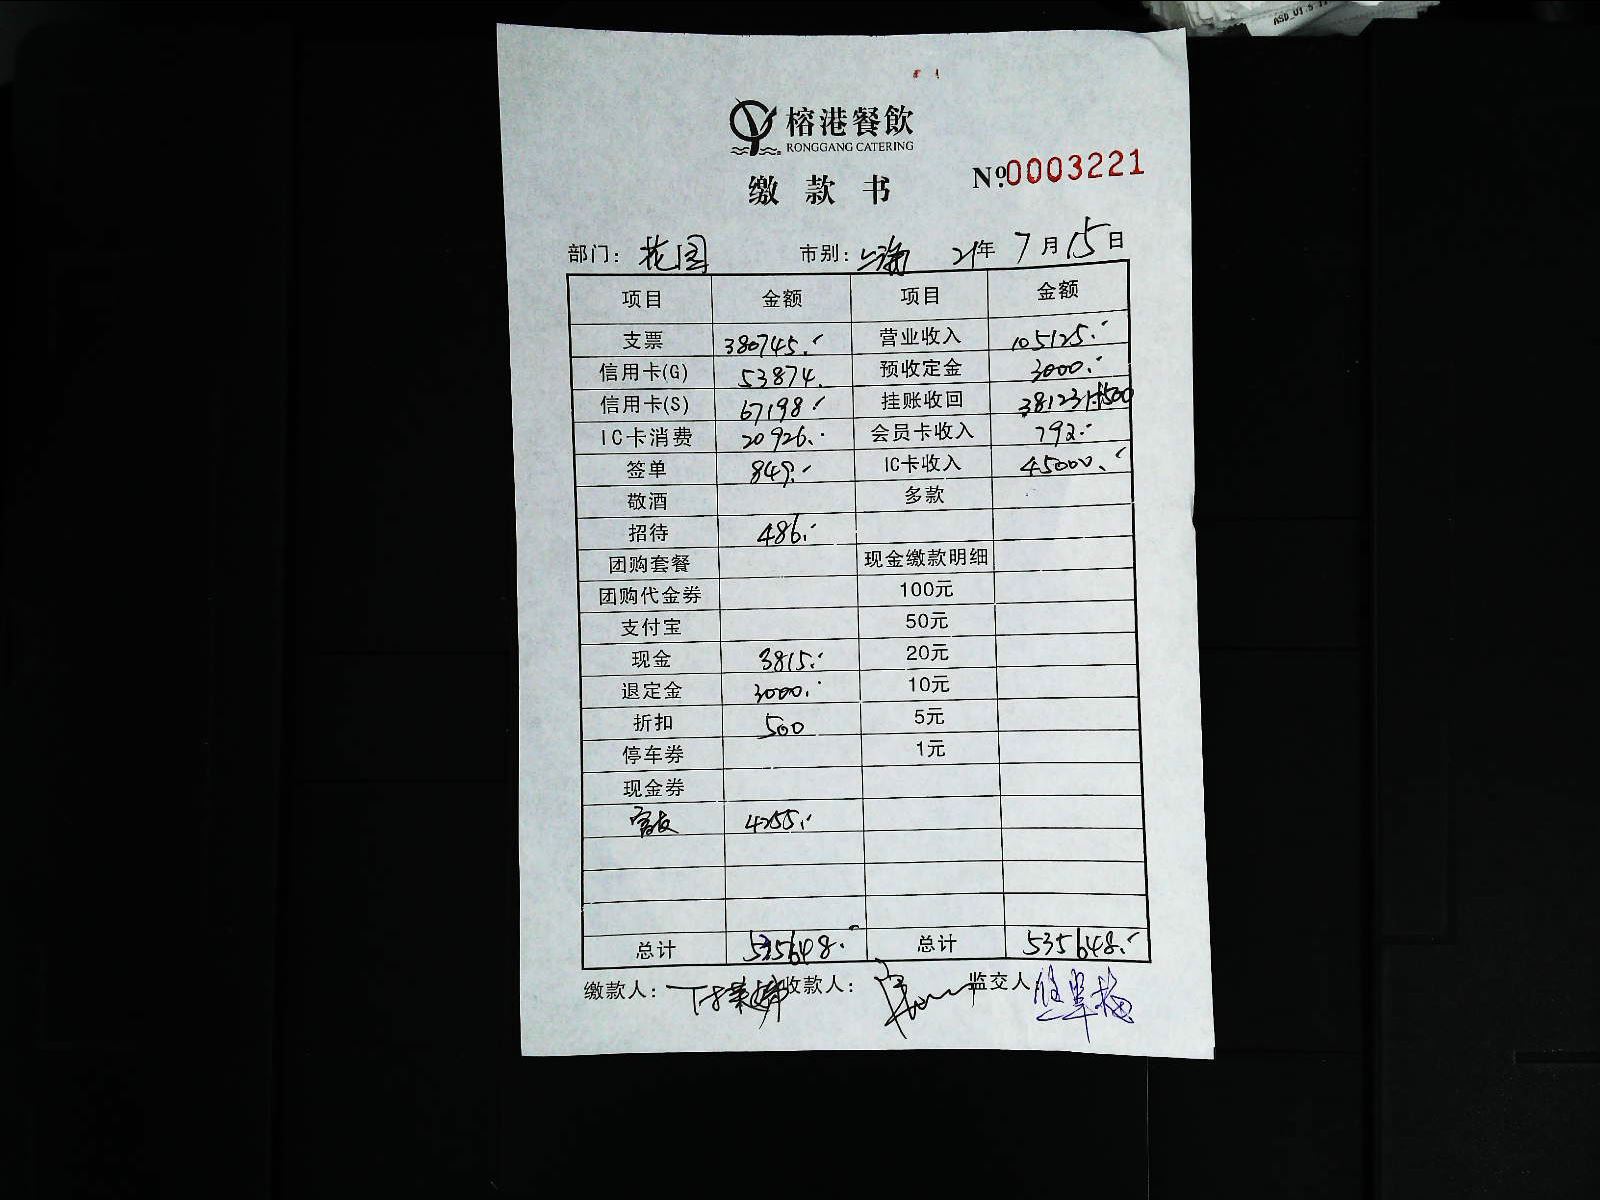 ASD_V1.5
榕港餐飲
RONGGANG CATERING
缴款书
№0003221
部门: 花园 市别: 21年 7月15日
项目 金额 项目 金额
支票 380745. 营业收入 105125.
信用卡(G) 53874. 预收定金 3000.
信用卡(S) 67198 挂账收回 381231+500
IC卡消费 20926. 会员卡收入 792.
签单 849. IC卡收入 45000.
敬酒 多款
招待 486.
团购套餐 现金缴款明细
团购代金券 100元
支付宝 50元
现金 3815. 20元
退定金 3000. 10元
折扣 500 5元
停车券 1元
现金券
4255.
总计 535648. 总计 535648.
缴款人: 收款人: 监交人